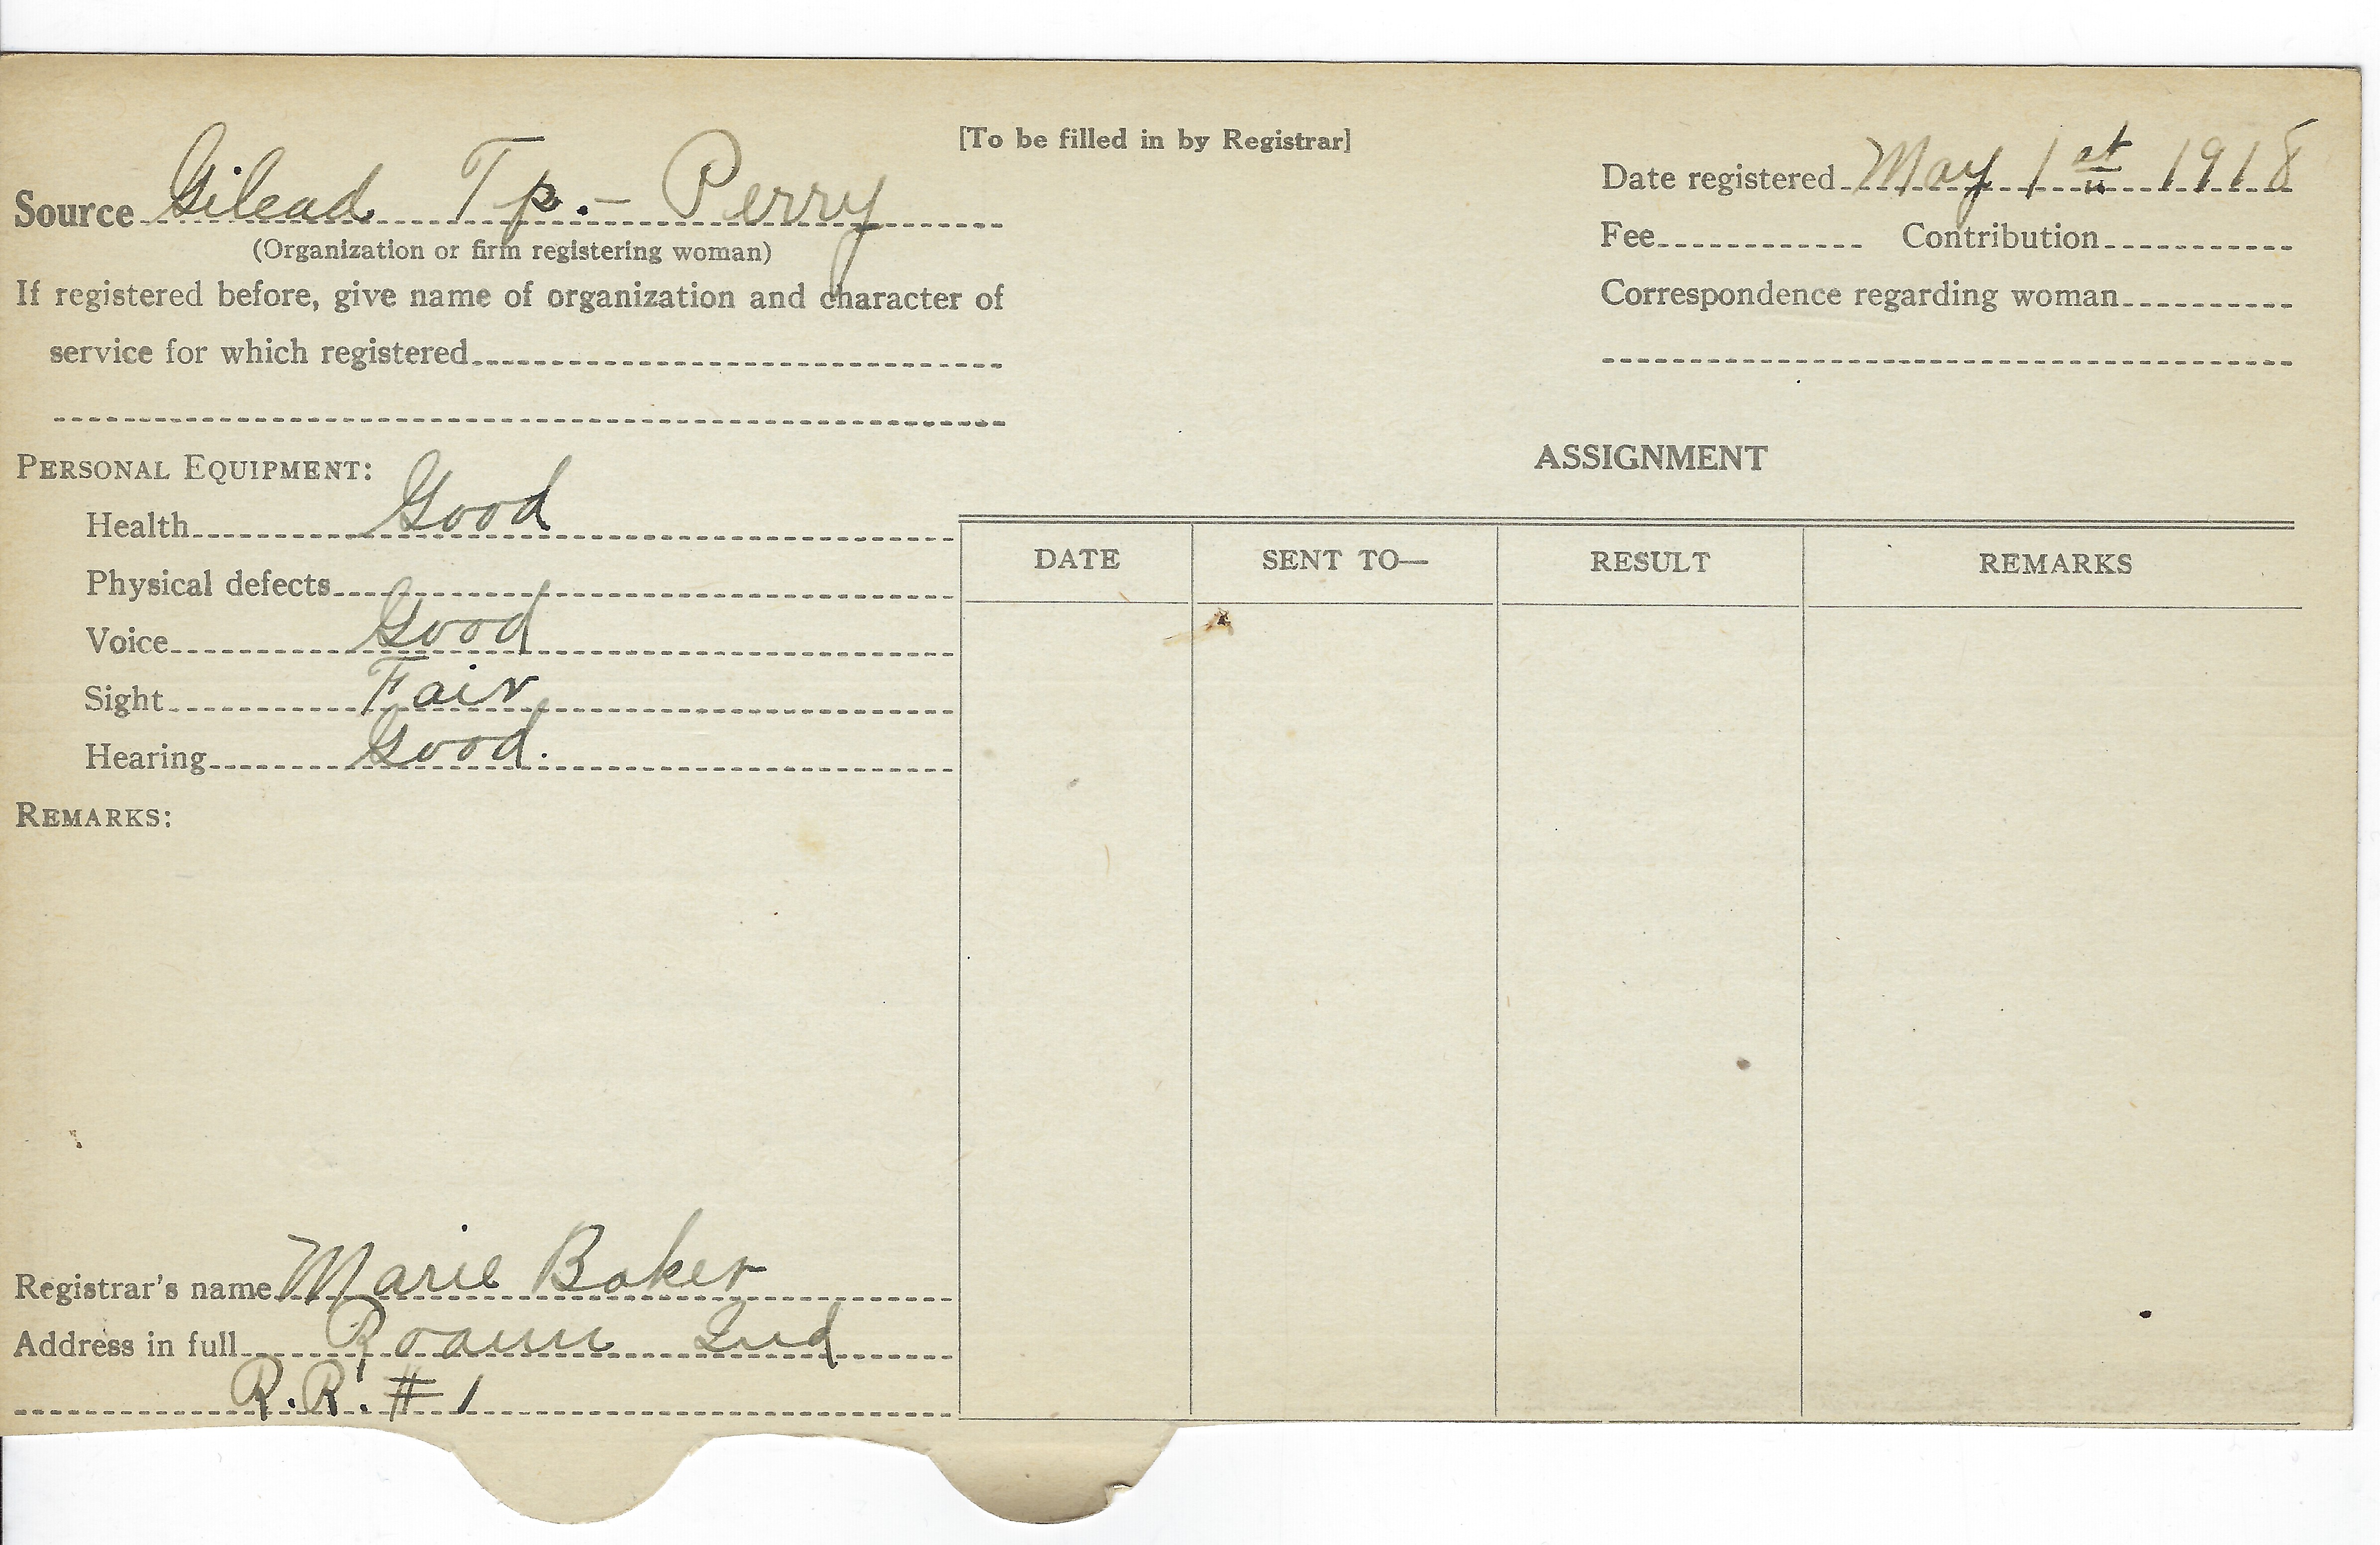 [To be filled in by Registrar]
Source Gilead Tp. - Perry
(Organization or firm registering woman)
If registered before, give name of organization and character of
service for which registered
Date registered May 1st 1918
Fee Contribution
Correspondence regarding woman
PERSONAL EQUIPMENT:
Health Good
Physical defects
Voice Good
Sight Fair
Hearing Good.
REMARKS:
ASSIGNMENT
DATE SENT TO— RESULT REMARKS
Registrar's name Marie Baker
Address in full Roann Ind
R.R. # 1